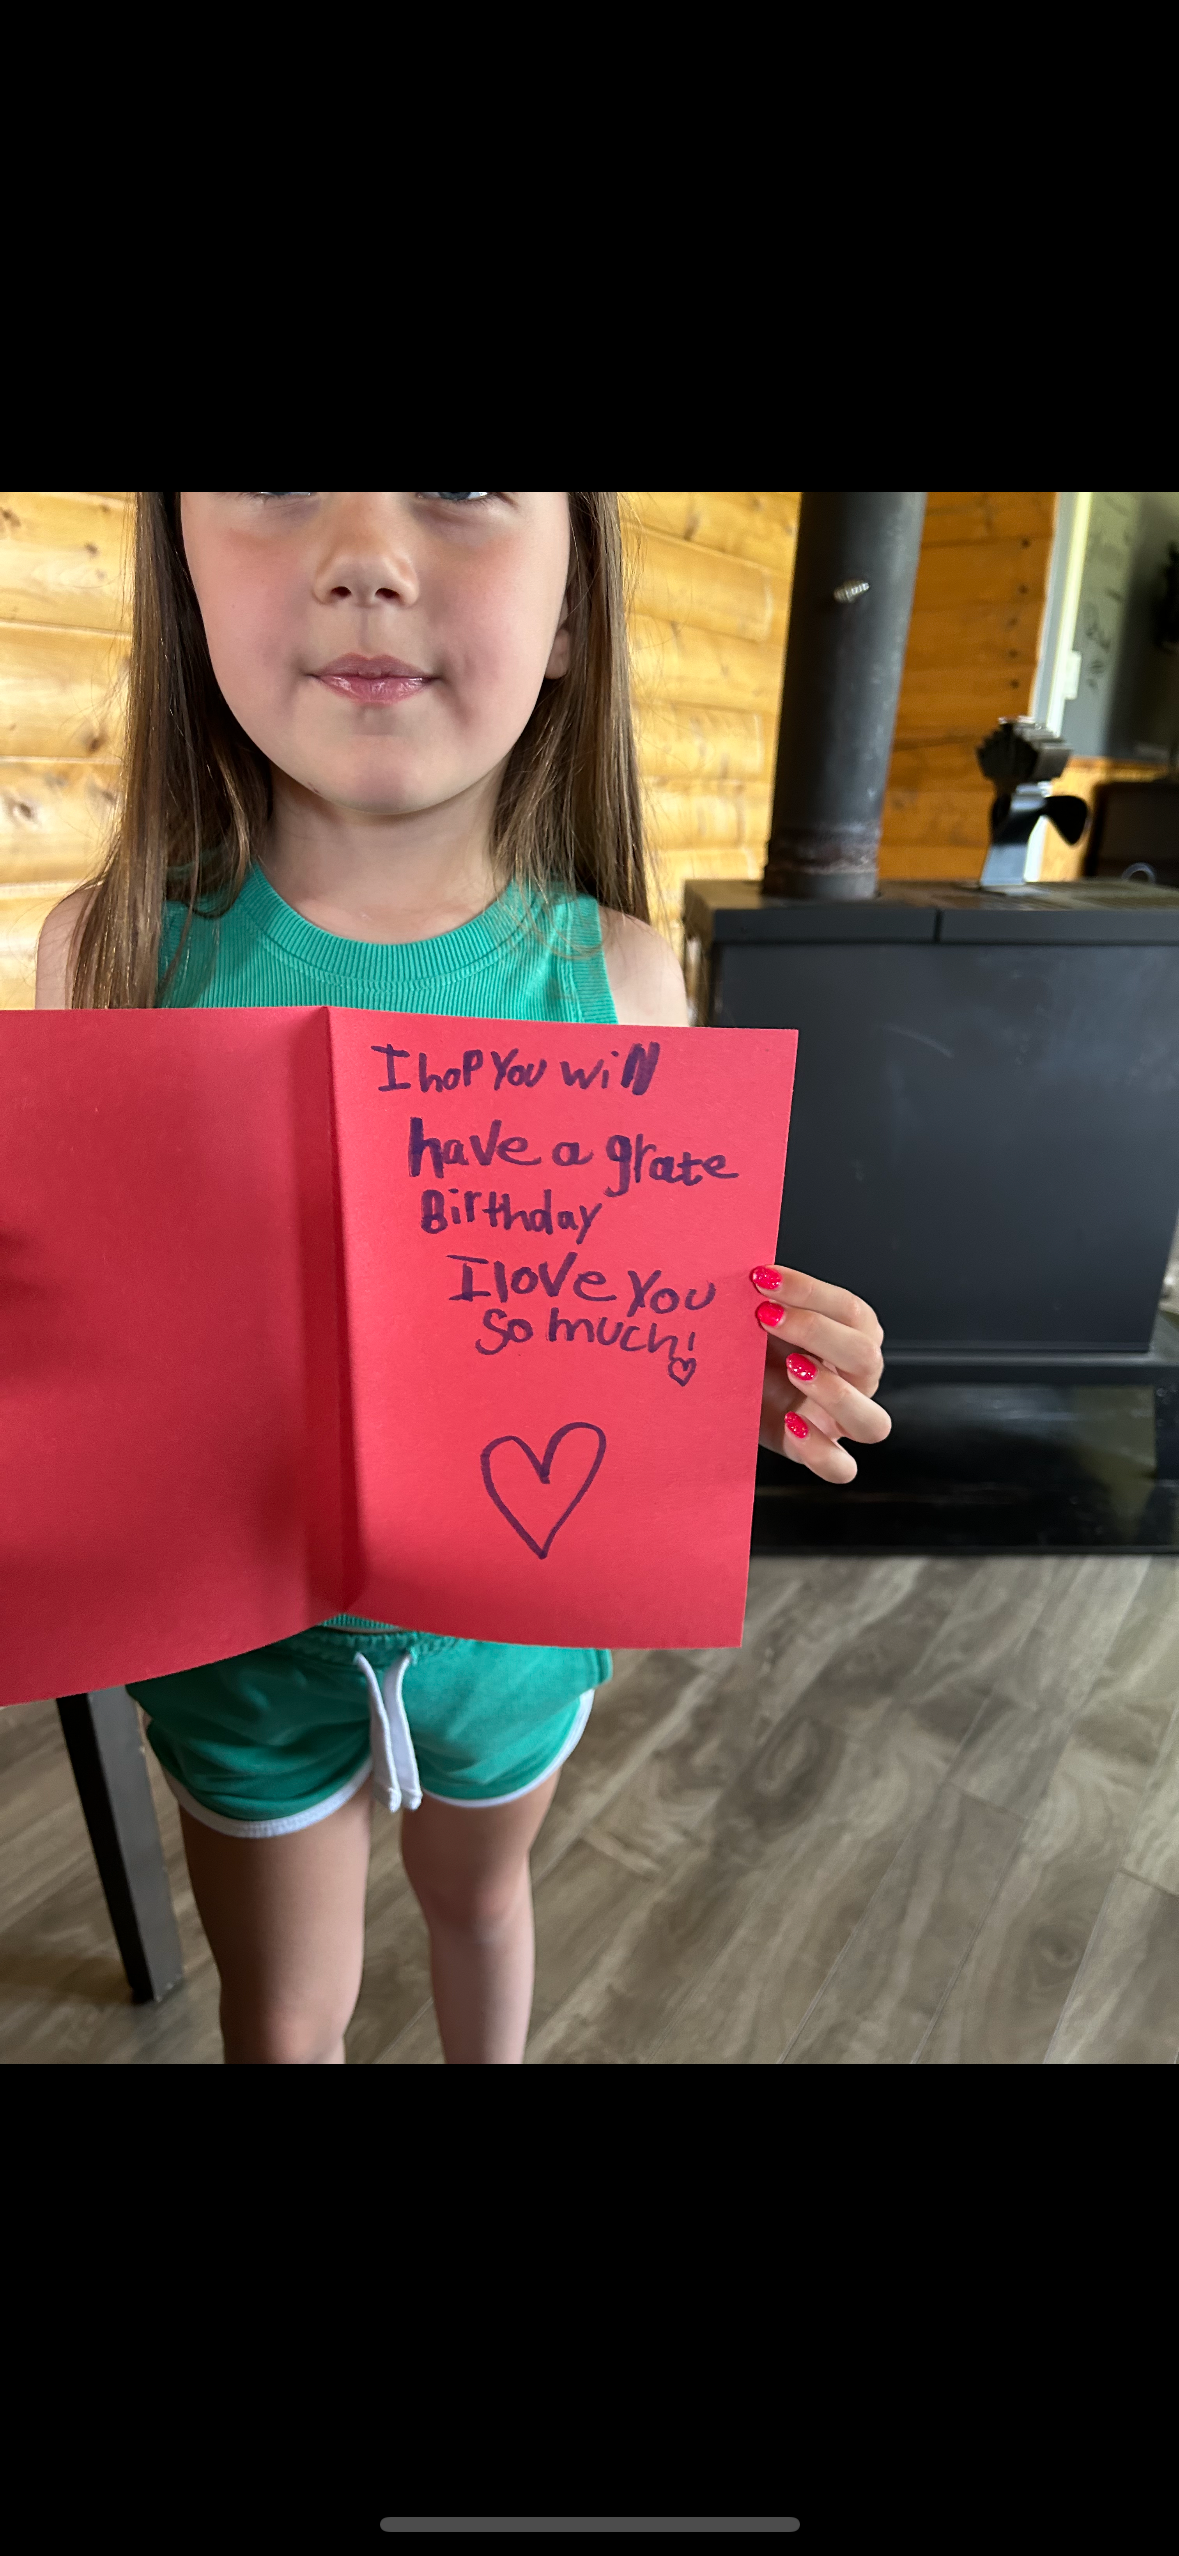 I hop You will
have a grate
Birthday
I love You
so much!